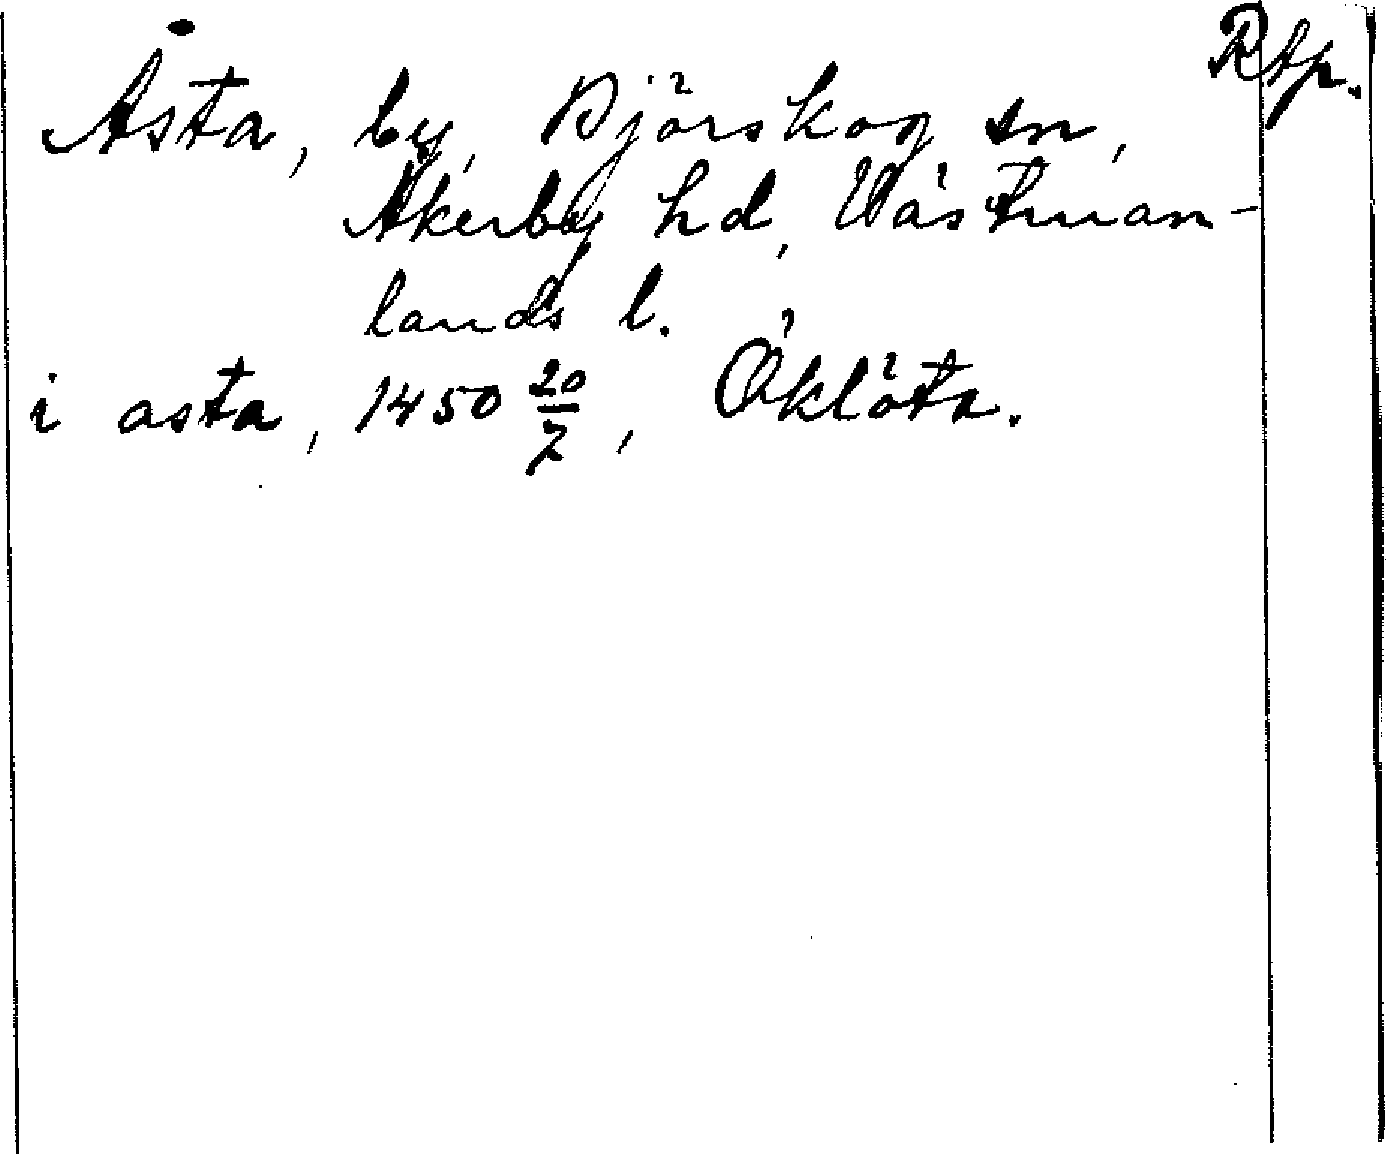 Rtp.
Åsta, by, Björskog sn,
Åkerbo hd, Västman-
lands l.
i asta, 1450 20/7, Öklöta.